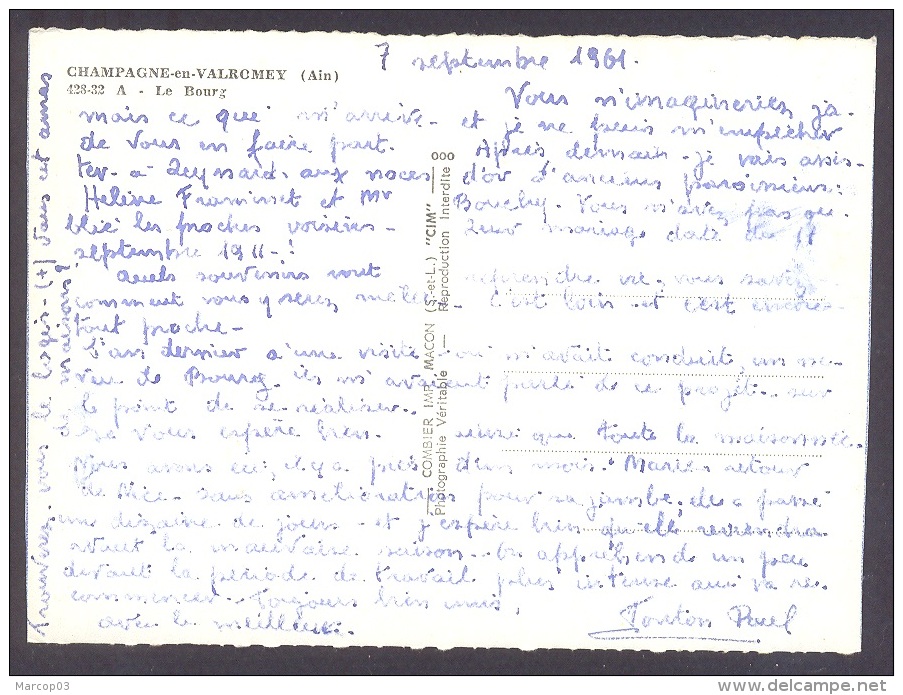 7 septembre 1961.
CHAMPAGNE-en-VALROMEY (Ain)
428-32 A - Le Bourg
Vous n'imagineriez ja-
mais ce qui m'arrive - et je ne puis m'empêcher
de vous en faire part. Après demain - je vais assis-
ter - à Leynard - aux noces d'or d'anciens paroissiens :
Hélène Framinet et Mr Bouchy. Vous n'avez pas ou-
blié les proches voisins - Leur mariage date du 11
septembre 1911 - !
Quels souvenirs vont reprendre vie, vous savez
comment vous y serez mêlés - C'est loin et c'est encore
tout proche -
L'an dernier à une visite où m'avait conduit un ne-
veu de Bourg - ils m'avaient parlé de ce projet - sur
le point de se réaliser.
Je vous espère bien ainsi que toute la maisonnée.
Nous avons eu, il y a près d'un mois - Marie - retour
de Nice - sans amélioration pour sa jambe, elle a passé
une dizaine de jours - et j'espère bien qu'elle reviendra
avant la mauvaise saison - On appréhende un peu
devant la période de travail plus intense qui va re-
commencer - Toujours bien unis,
avec le meilleur.
Tonton Paul
Trouverez-vous le logis - (+) dans cet amas
de maisons ?
COMBIER IMP. MACON (S.-et-L.) "CIM"
Photographie Véritable — Reproduction Interdite
Marcop03
www.delcampe.net